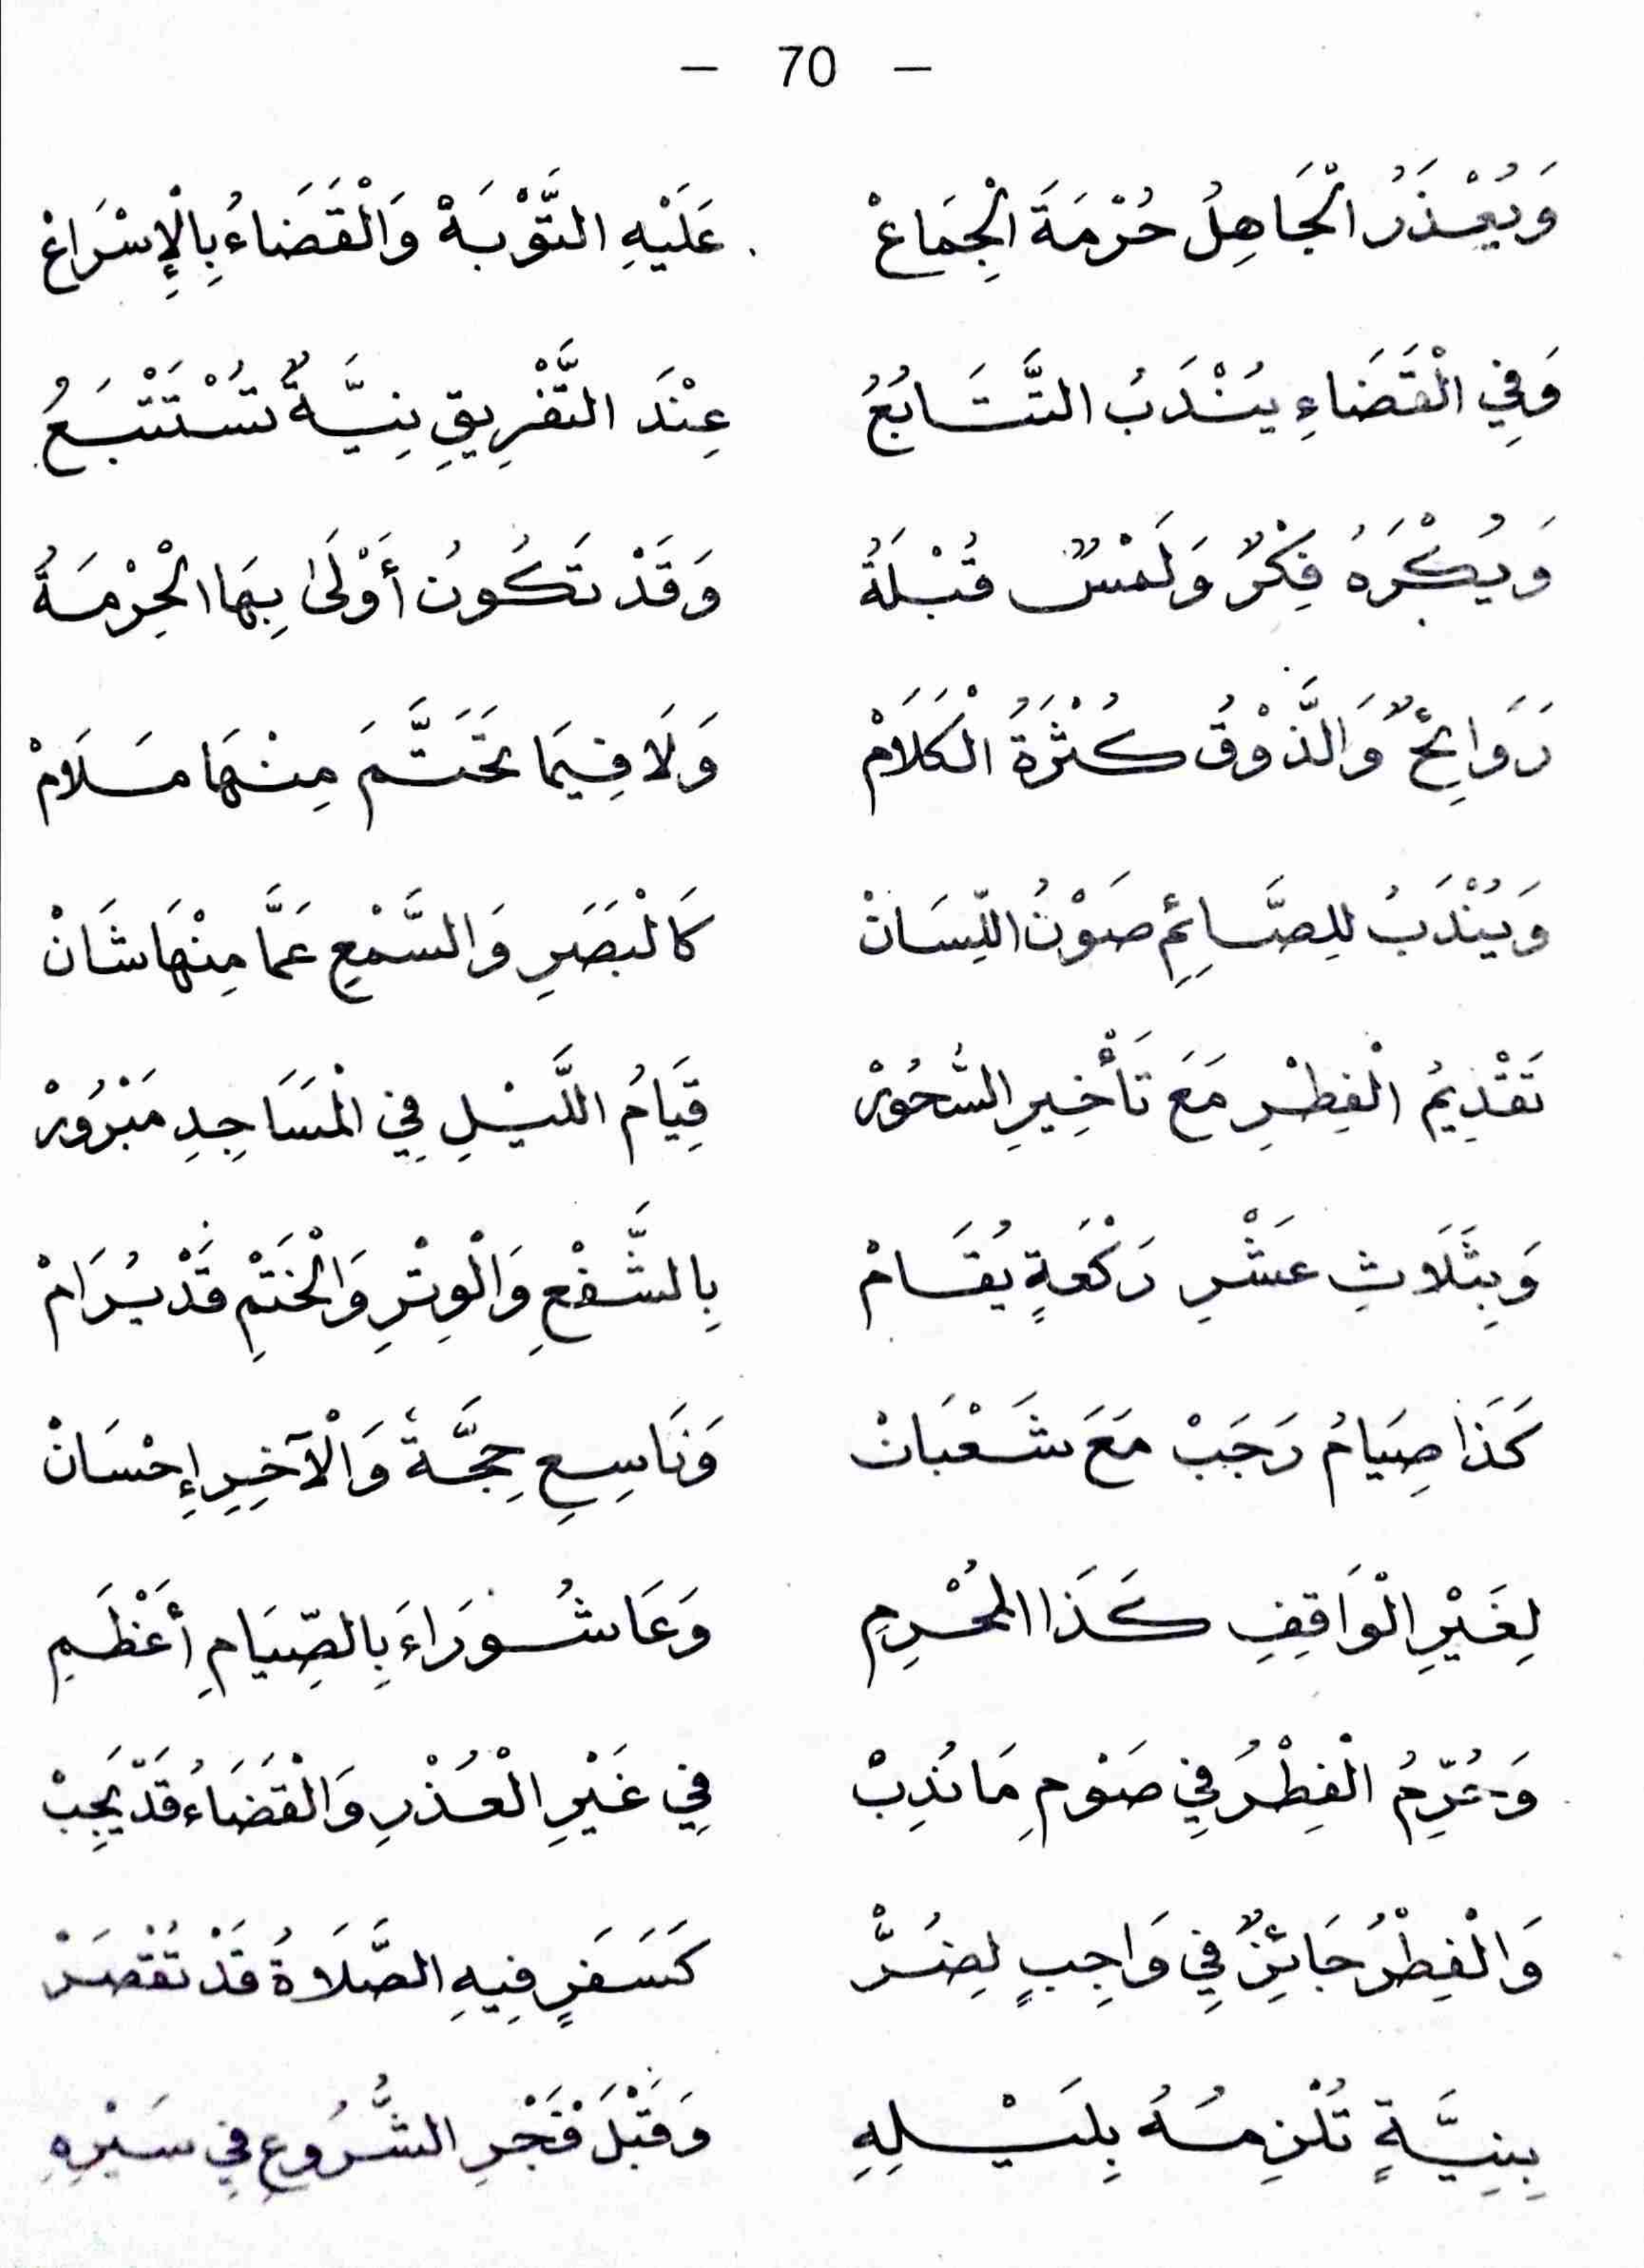 – 70 –
وَيُعْذَرُ الْجَاهِلُ حُرْمَةَ الْجِمَاعْ عَلَيْهِ التَّوْبَةْ وَالْقَضَاءُ بِالْإِسْرَاعْ
وَفِي الْقَضَاءِ يُنْدَبُ التَّتَابُعُ عِنْدَ التَّفْرِيقِ نِيَّةٌ تُسْتَتْبَعُ
وَيُكْرَهُ فِكْرٌ وَلَمْسٌ قُبْلَةُ وَقَدْ تَكُونُ أَوْلَىٰ بِهَا الْحِرْمَةُ
رَوَائِحٌ وَالذَّوْقُ كُثْرَةُ الْكَلَامْ وَلَا فِيمَا تَحَتَّمَ مِنْهَا مَلَامْ
وَيُنْدَبُ لِلصَّائِمِ صَوْنُ اللِّسَانْ كَالْبَصَرِ وَالسَّمْعِ عَمَّا مِنْهَا شَانْ
تَقْدِيمُ الْفِطْرِ مَعَ تَأْخِيرِ السُّحُورْ قِيَامُ اللَّيْلِ فِي الْمَسَاجِدِ مَبْرُورْ
وَبِثَلَاثِ عَشْرِ رَكْعَةٍ يُقَامْ بِالشَّفْعِ وَالْوِتْرِ وَالْخَتْمِ قَدْ يُرَامْ
كَذَا صِيَامُ رَجَبْ مَعَ شَعْبَانْ وَتَاسِعِ حِجَّةَ وَالْآخِرِ إِحْسَانْ
لِغَيْرِ الْوَاقِفِ كَذَا الْمُحْرِمِ وَعَاشُورَاءَ بِالصِّيَامِ أَعْظَمِ
وَحُرِّمُ الْفِطْرُ فِي صَوْمِ مَا نُدِبْ فِي غَيْرِ الْعُذْرِ وَالْقَضَاءُ قَدْ يَجِبْ
وَالْفِطْرُ جَائِزٌ فِي وَاجِبٍ لِضُرّْ كَسَفَرٍ فِيهِ الصَّلَاةُ قَدْ تُقْصَرْ
بِنِيَّةٍ تُلْزِمُهُ بِلَيْلِهِ وَقَبْلَ فَجْرِ الشُّرُوعِ فِي سَيْرِهِ